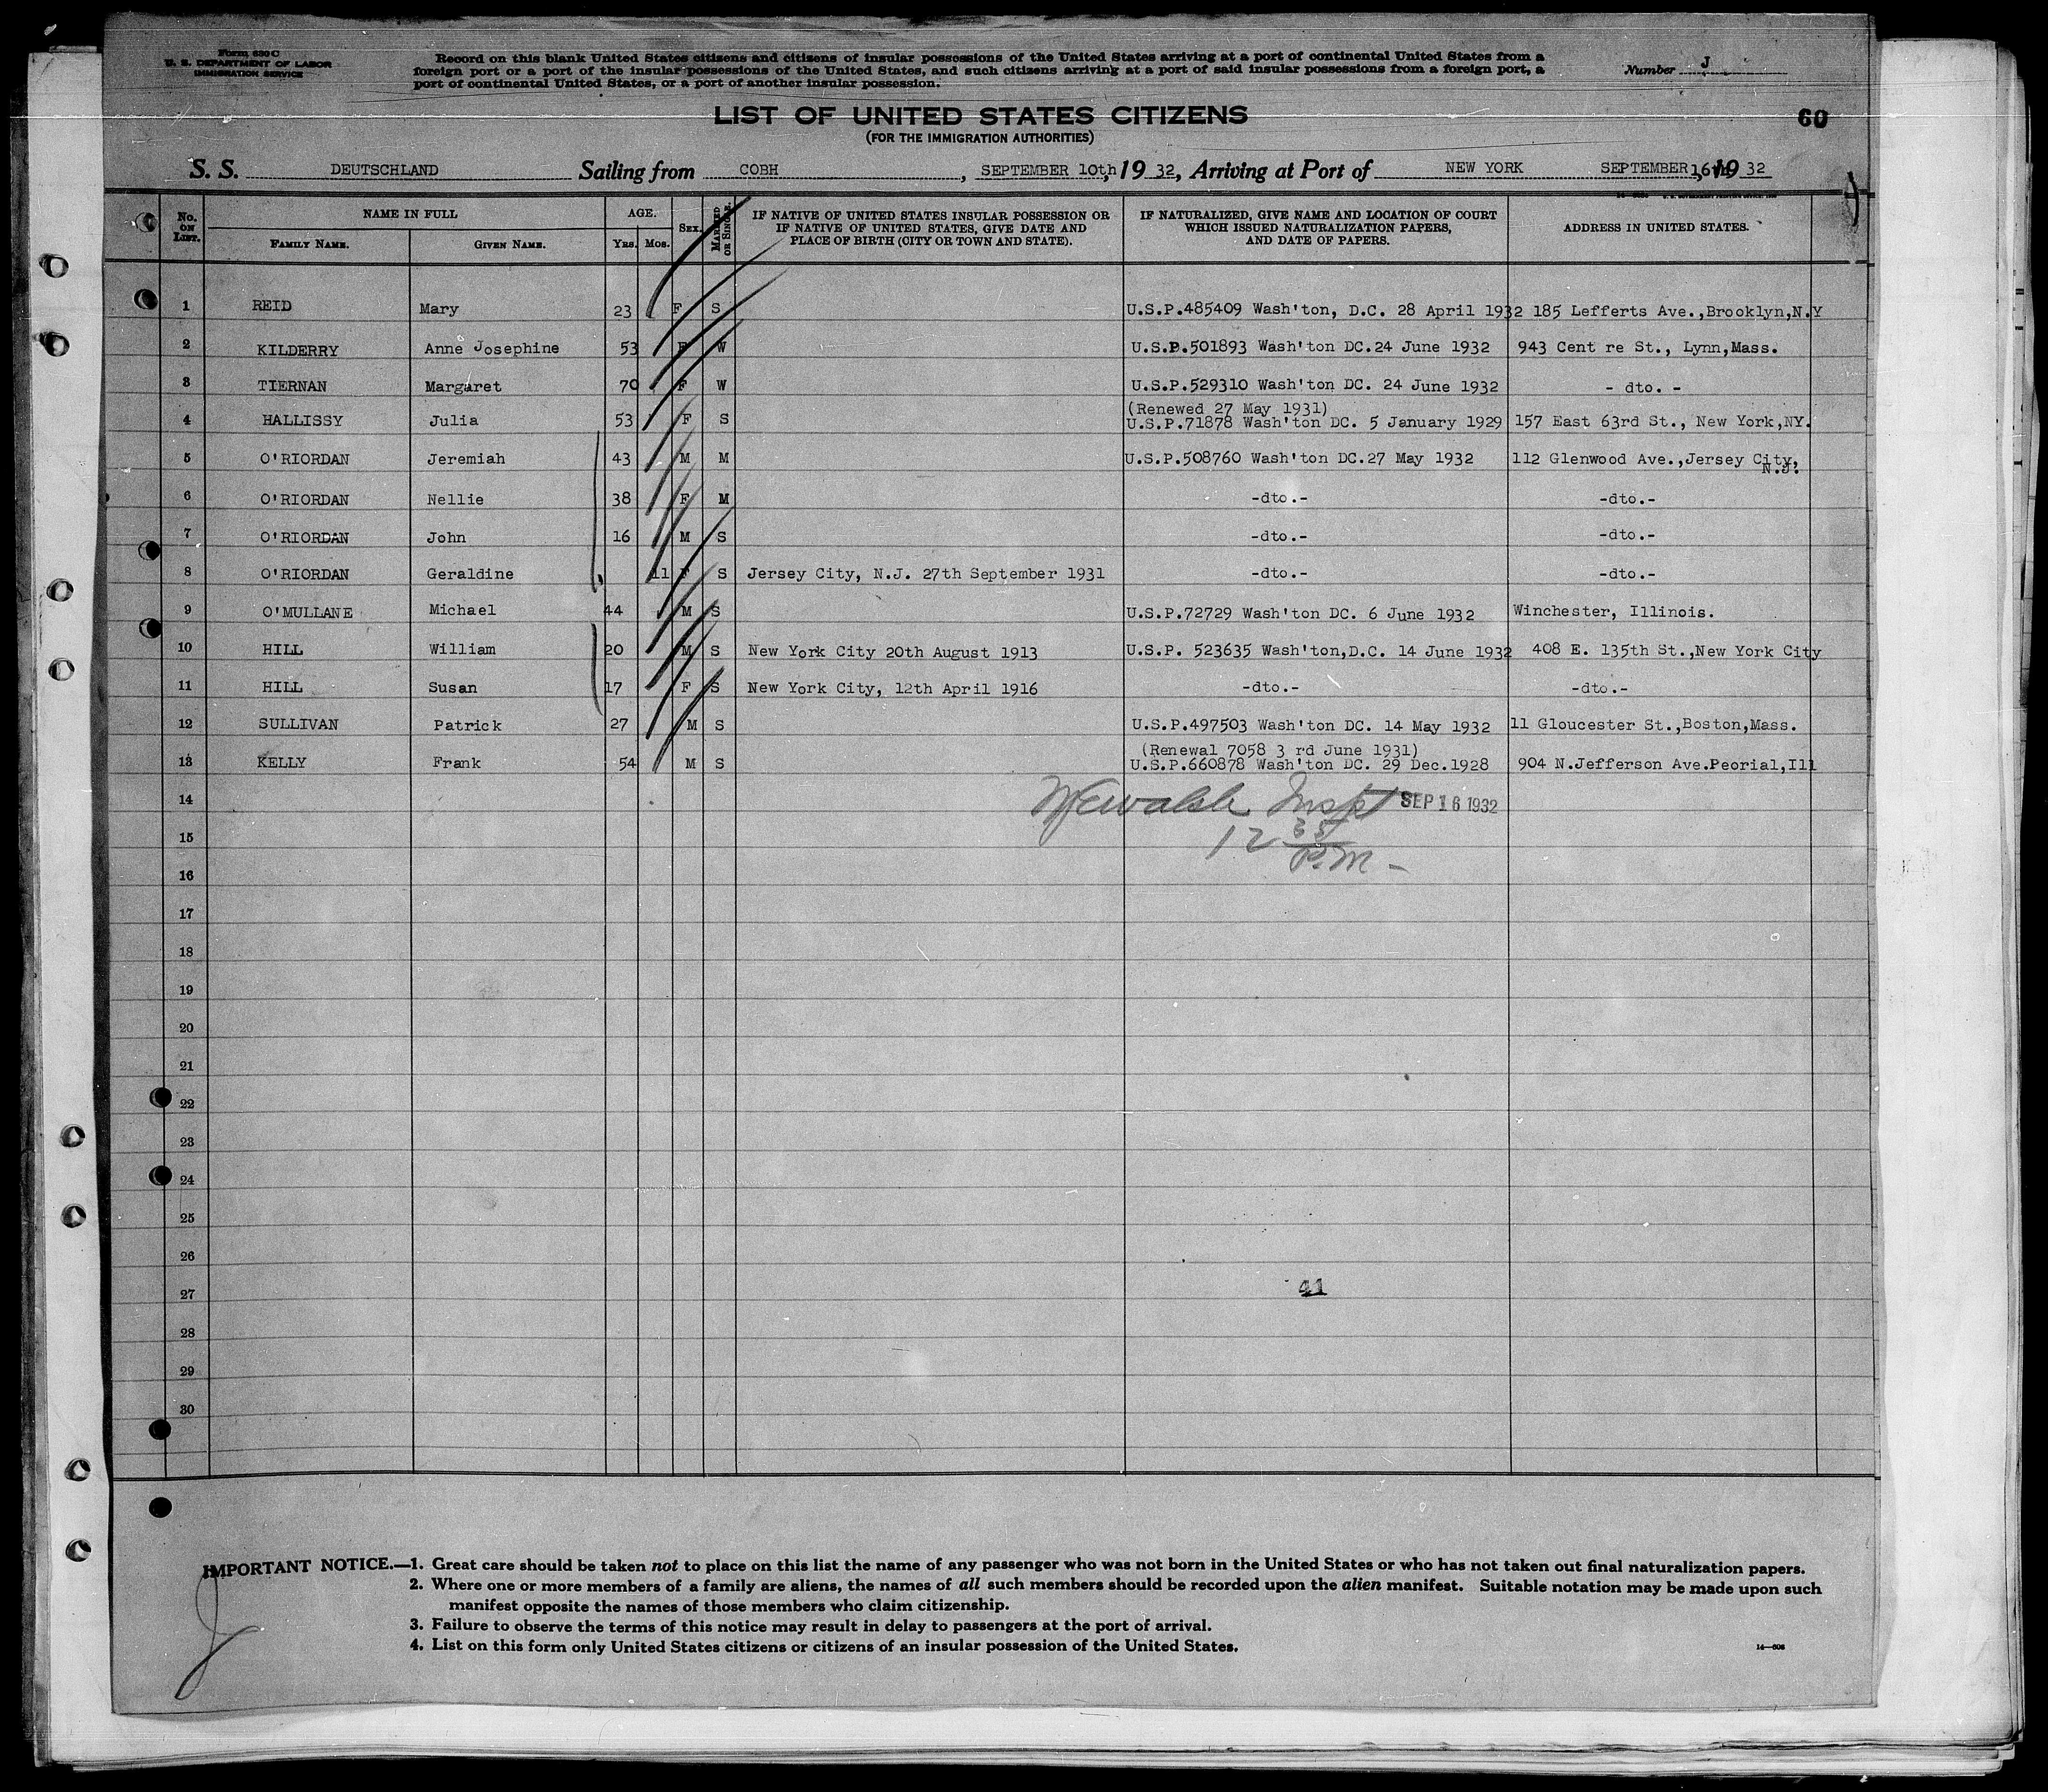 Form 630 C
U. S. DEPARTMENT OF LABOR
IMMIGRATION SERVICE
Record on this blank United States citizens and citizens of insular possessions of the United States arriving at a port of continental United States from a
foreign port or a port of the insular possessions of the United States, and such citizens arriving at a port of said insular possessions from a foreign port, a
port of continental United States, or a port of another insular possession.
Number J
LIST OF UNITED STATES CITIZENS
(FOR THE IMMIGRATION AUTHORITIES)
60
S. S. DEUTSCHLAND Sailing from COBH, SEPTEMBER 10th, 19 32, Arriving at Port of NEW YORK SEPTEMBER 16th, 19 32
No. ON LIST. NAME IN FULL FAMILY NAME. GIVEN NAME. AGE. Yrs. Mos. SEX. MARRIED OR SINGLE. IF NATIVE OF UNITED STATES INSULAR POSSESSION OR IF NATIVE OF UNITED STATES, GIVE DATE AND PLACE OF BIRTH (CITY OR TOWN AND STATE). IF NATURALIZED, GIVE NAME AND LOCATION OF COURT WHICH ISSUED NATURALIZATION PAPERS, AND DATE OF PAPERS. ADDRESS IN UNITED STATES.
1 REID Mary 23 F S U.S.P.485409 Wash'ton, D.C. 28 April 1932 185 Lefferts Ave.,Brooklyn,N.Y
2 KILDERRY Anne Josephine 53 F W U.S.P.501893 Wash'ton DC.24 June 1932 943 Cent re St., Lynn,Mass.
3 TIERNAN Margaret 70 F W U.S.P.529310 Wash'ton DC. 24 June 1932 - dto. -
(Renewed 27 May 1931)
4 HALLISSY Julia 53 F S U.S.P.71878 Wash'ton DC. 5 January 1929 157 East 63rd St., New York,NY.
5 O'RIORDAN Jeremiah 43 M M U.S.P.508760 Wash'ton DC.27 May 1932 112 Glenwood Ave.,Jersey City,
N.J.
6 O'RIORDAN Nellie 38 F M -dto.- -dto.-
7 O'RIORDAN John 16 M S -dto.- -dto.-
8 O'RIORDAN Geraldine 11 F S Jersey City, N.J. 27th September 1931 -dto.- -dto.-
9 O'MULLANE Michael 44 M S U.S.P.72729 Wash'ton DC. 6 June 1932 Winchester, Illinois.
10 HILL William 20 M S New York City 20th August 1913 U.S.P. 523635 Wash'ton,D.C. 14 June 1932 408 E. 135th St.,New York City
11 HILL Susan 17 F S New York City, 12th April 1916 -dto.- -dto.-
12 SULLIVAN Patrick 27 M S U.S.P.497503 Wash'ton DC. 14 May 1932 11 Gloucester St.,Boston,Mass.
(Renewal 7058 3 rd June 1931)
13 KELLY Frank 54 M S U.S.P.660878 Wash'ton DC. 29 Dec.1928 904 N.Jefferson Ave.Peorial,Ill
14 Walsh Inspt SEP 16 1932
15 12 35
P.M -
16
17
18
19
20
21
22
23
24
25
26
27 41
28
29
30
IMPORTANT NOTICE.—1. Great care should be taken not to place on this list the name of any passenger who was not born in the United States or who has not taken out final naturalization papers.
2. Where one or more members of a family are aliens, the names of all such members should be recorded upon the alien manifest. Suitable notation may be made upon such
manifest opposite the names of those members who claim citizenship.
3. Failure to observe the terms of this notice may result in delay to passengers at the port of arrival.
4. List on this form only United States citizens or citizens of an insular possession of the United States.
J